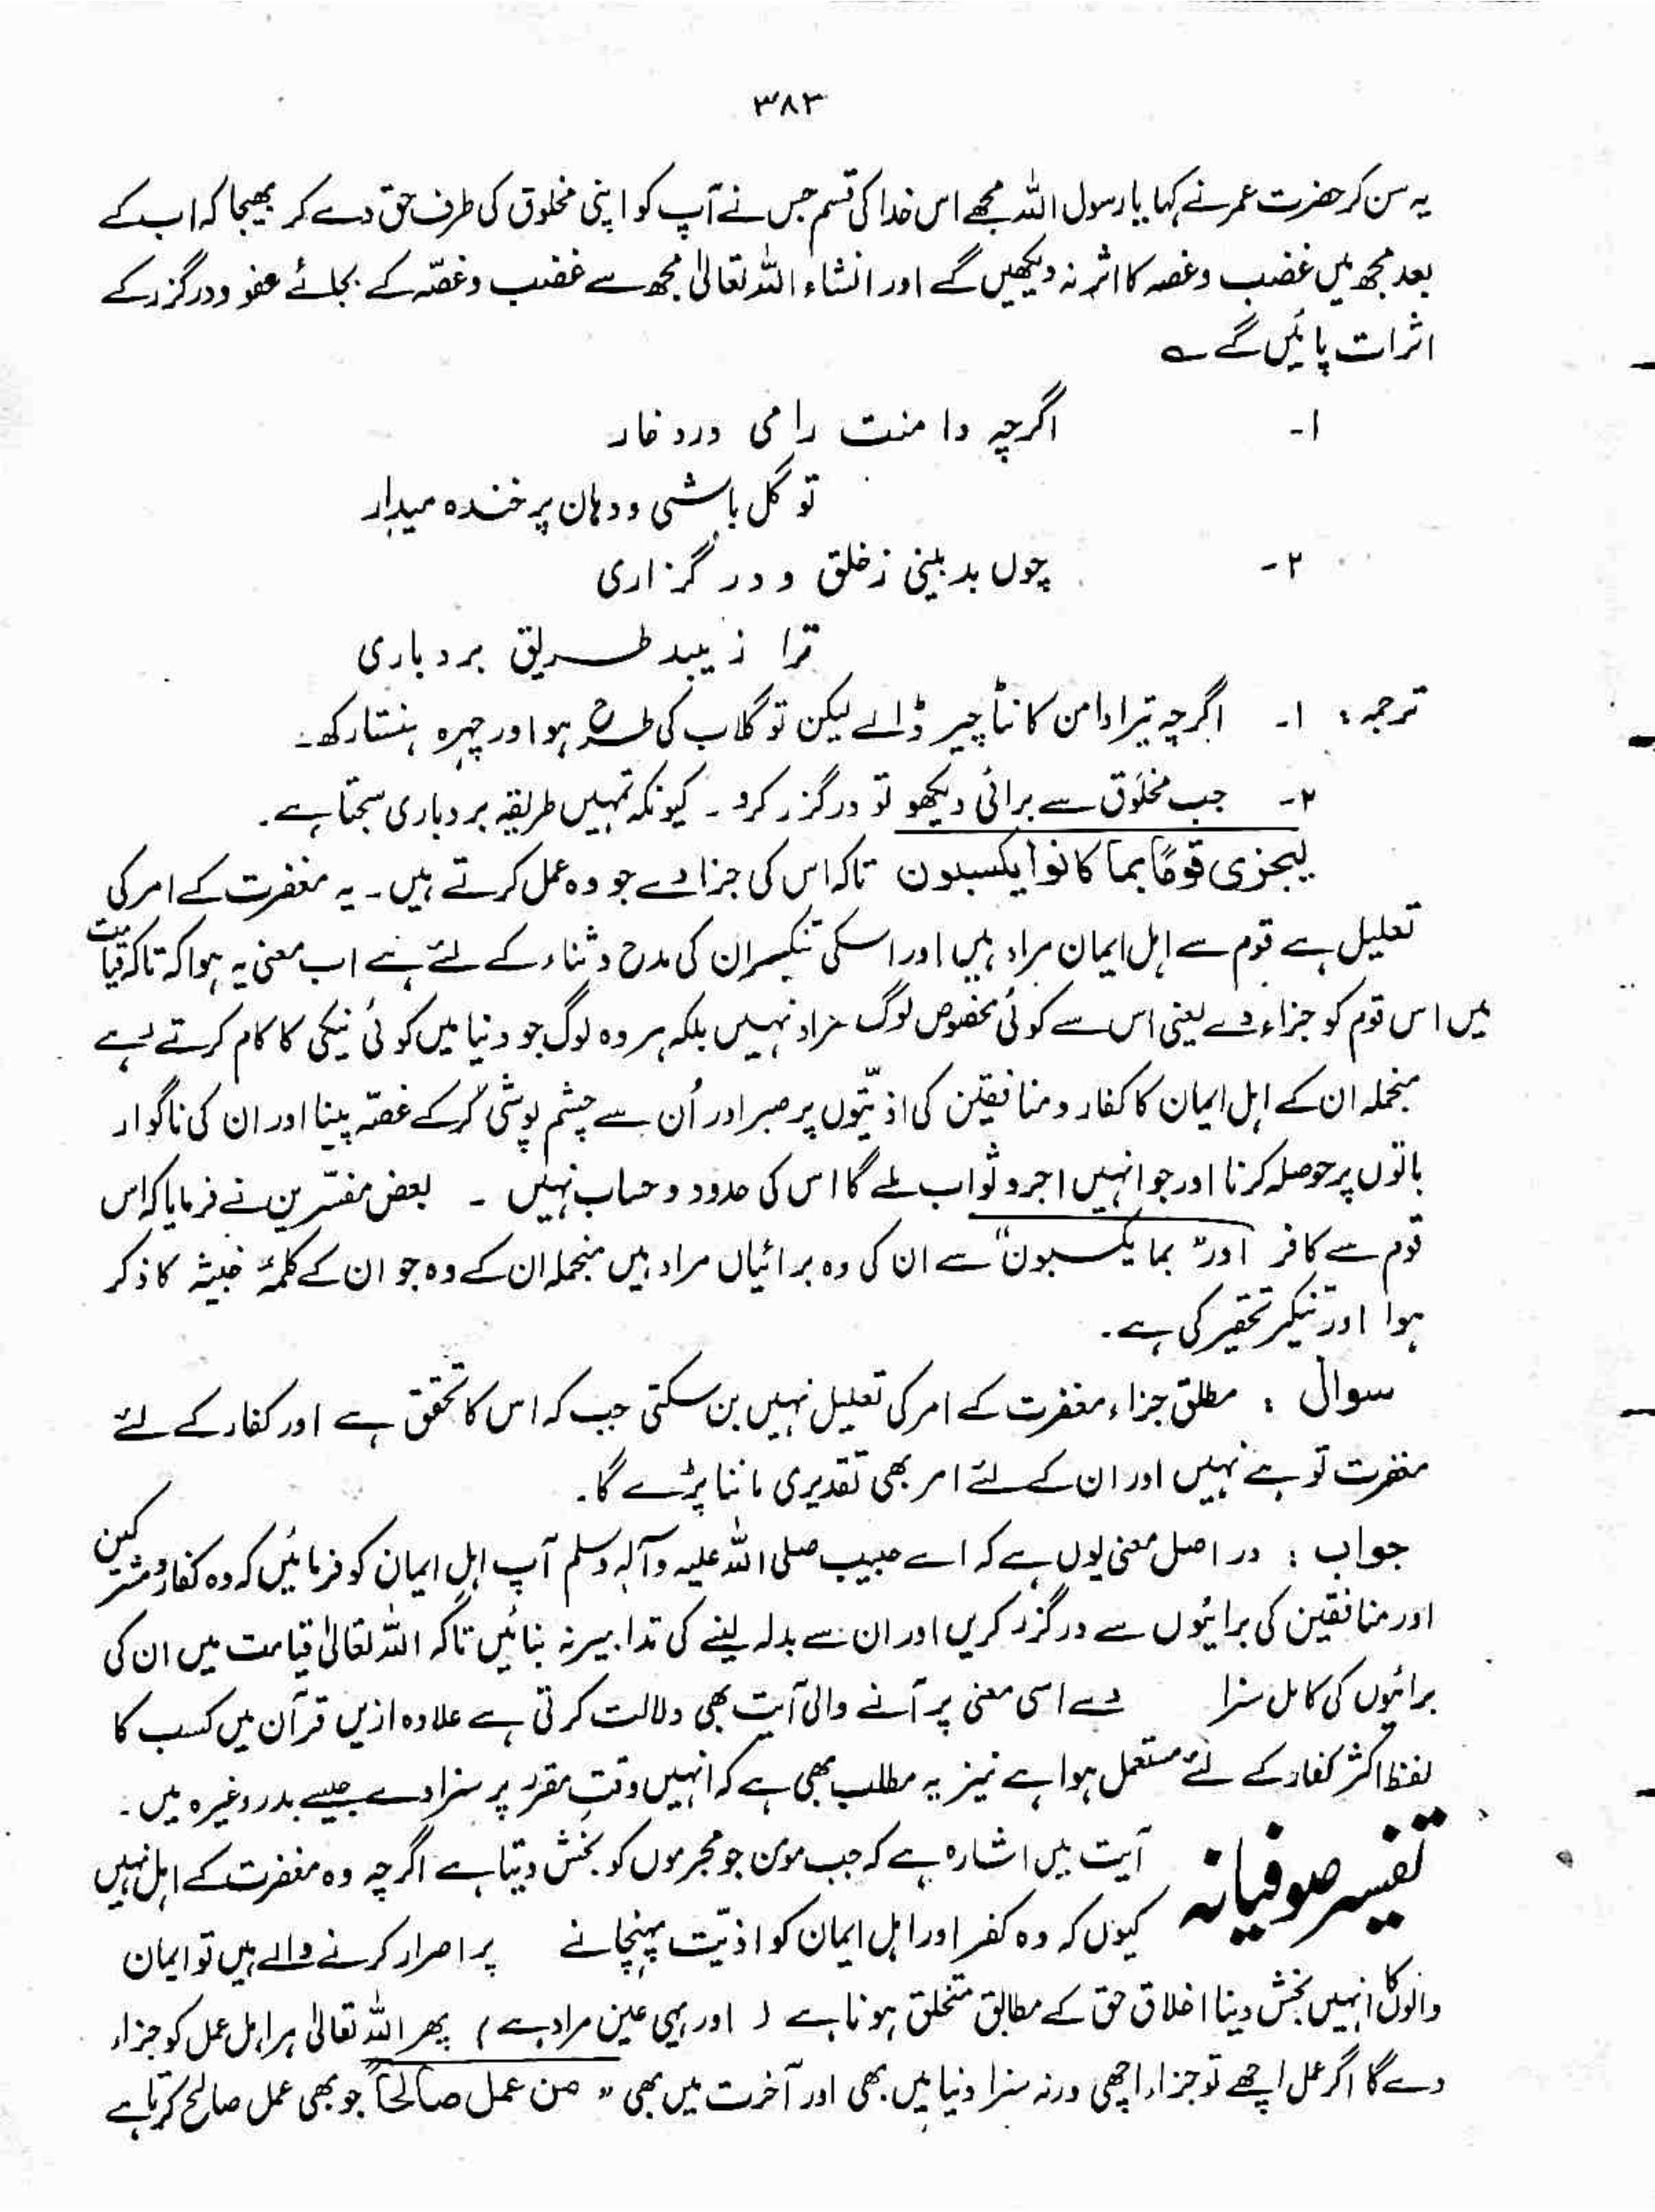 ۳۸۳
یہ سن کر حضرت عمر نے کہا یا رسول اللہ مجھے اس خدا کی قسم جس نے آپ کو اپنی مخلوق کی طرف حق دے کر بھیجا کہ اب کے
بعد مجھ میں غضب و غصہ کا اثر نہ دیکھیں گے اور انشاء اللہ تعالیٰ مجھ سے غضب و غصّہ کے بجائے عفو و درگزر کے
اثرات پائیں گے ؎
۱۔ اگرچہ دامنت را می درد خار
تو گل باشی و دہان پر خندہ میدار
۲۔ چوں بد بینی ز خلق و در گزاری
ترا زیبد طریق بردباری
ترجمہ : ۱۔ اگرچہ تیرا دامن کانٹا چیر ڈالے لیکن تو گلاب کی طرح ہو اور چہرہ ہنستا رکھ۔
۲۔ جب مخلوق سے برائی دیکھو تو درگزر کرو ۔ کیونکہ تمہیں طریقہ بردباری سجتا ہے ۔
لیجزی قومًا بما کانوا یکسبون تاکہ اس کی جزا دے جو وہ عمل کرتے ہیں ۔ یہ مغفرت کے امر کی
تعلیل ہے قوم سے اہل ایمان مراد ہیں اور اسکی تنکیر ان کی مدح و ثناء کے لئے ہے اب معنی یہ ہوا کہ تاکہ قیامت
میں اس قوم کو جزاء دے یعنی اس سے کوئی مخصوص لوگ مراد نہیں بلکہ ہر وہ لوگ جو دنیا میں کوئی نیکی کا کام کرتے رہے
منجملہ ان کے اہل ایمان کا کفار و منافقین کی اذیّتوں پر صبر اور اُن سے چشم پوشی کرکے غصّہ پینا اور ان کی ناگوار
باتوں پر حوصلہ کرنا اور جو انہیں اجر و ثواب ملے گا اس کی حدود و حساب نہیں ۔ بعض مفسّرین نے فرمایا کہ اس
قوم سے کافر اور "بما یکسبون" سے ان کی وہ برائیاں مراد ہیں منجملہ ان کے وہ جو ان کے کلمۂ خبیثہ کا ذکر
ہوا اور تنکیر تحقیر کی ہے ۔
سوال : مطلق جزاء مغفرت کے امر کی تعلیل نہیں بن سکتی جب کہ اس کا تحقق ہے اور کفار کے لئے
مغفرت تو ہے نہیں اور ان کے لئے امر بھی تقدیری ماننا پڑے گا ۔
جواب : در اصل معنی یوں ہے کہ اے حبیب صلی اللہ علیہ وآلہ وسلم آپ اہل ایمان کو فرمائیں کہ وہ کفار و مشرکین
اور منافقین کی برائیوں سے درگزر کریں اور ان سے بدلہ لینے کی تدابیر نہ بنائیں تاکہ اللہ تعالیٰ قیامت میں ان کی
برائیوں کی کامل سزا دے اسی معنی پر آنے والی آیت بھی دلالت کرتی ہے علاوہ ازیں قرآن میں کسب کا
لفظ اکثر کفار کے لئے مستعمل ہوا ہے نیز یہ مطلب بھی ہے کہ انہیں وقتِ مقرر پر سزا دے جیسے بدر وغیرہ میں ۔
تفسیر صوفیانہ آیت میں اشارہ ہے کہ جب مومن جو مجرموں کو بخش دیتا ہے اگرچہ وہ مغفرت کے اہل نہیں
کیوں کہ وہ کفر اور اہل ایمان کو اذیّت پہنچانے پر اصرار کرنے والے ہیں تو ایمان
والوں کا انہیں بخش دینا اخلاق حق کے مطابق متخلق ہونا ہے ( اور یہی عین مراد ہے ) پھر اللہ تعالیٰ ہر اہل عمل کو جزاء
دے گا اگر عمل اچھے تو جزاء اچھی ورنہ سزا دنیا میں بھی اور آخرت میں بھی " من عمل صالحًا جو بھی عمل صالح کرتا ہے